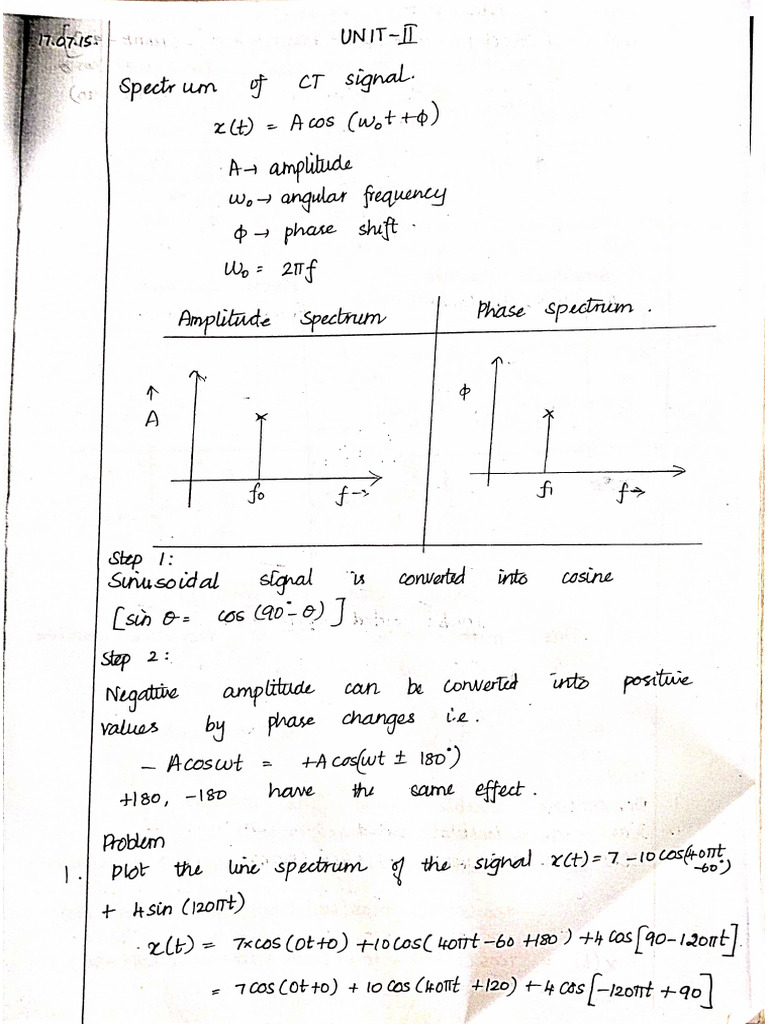 17.07.15.
UNIT-II
Spectrum of CT signal.
x(t) = A cos (ω₀t + ϕ)
A → amplitude
ω₀ → angular frequency
ϕ → phase shift.
ω₀ = 2πf
Amplitude Spectrum
Phase spectrum.
↑
A
f₀
f →
ϕ
f₁
f →
Step 1:
Sinusoidal signal is converted into cosine
[sin θ = cos (90° - θ)]
Step 2:
Negative amplitude can be converted into positive
values by phase changes i.e.
- A cos ωt = +A cos(ωt ± 180°)
+180, -180 have the same effect.
Problem
1. Plot the line spectrum of the signal x(t) = 7 - 10 cos(40πt
-60°)
+ 4 sin (120πt)
x(t) = 7×cos (0t+0) + 10 cos (40πt - 60 + 180°) + 4 cos [90 - 120πt].
= 7 cos (0t+0) + 10 cos (40πt + 120) + 4 cos [-120πt + 90]